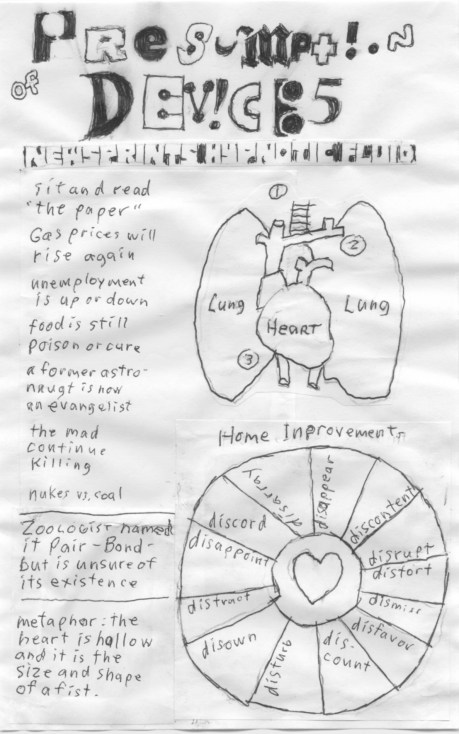 PResumpt!.oN
OF
DEV!CE5
NEWSPRINTS HYPNOTIC FLUID
Sit and read
"the paper"
Gas prices will
rise again
unemployment
is up or down
food is still
poison or cure
a former astro-
naugt is now
an evangelist
the mad
continue
killing
nukes vs. coal
ZOOLOGIST named
it Pair-Bond-
but is unsure of
its existence
metaphor: the
heart is hollow
and it is the
size and shape
of a fist.
1
2
Lung
Lung
HeArt
3
Home Inprovement
disarray
disappear
discontent
disrupt
distort
dismiss
disfavor
dis-
count
disturb
disown
distract
disappoint
discord